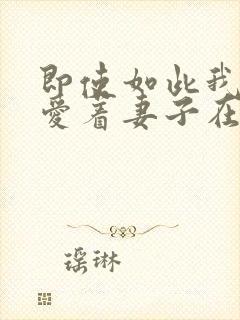 即使如此我
爱着妻子在
瑶琳